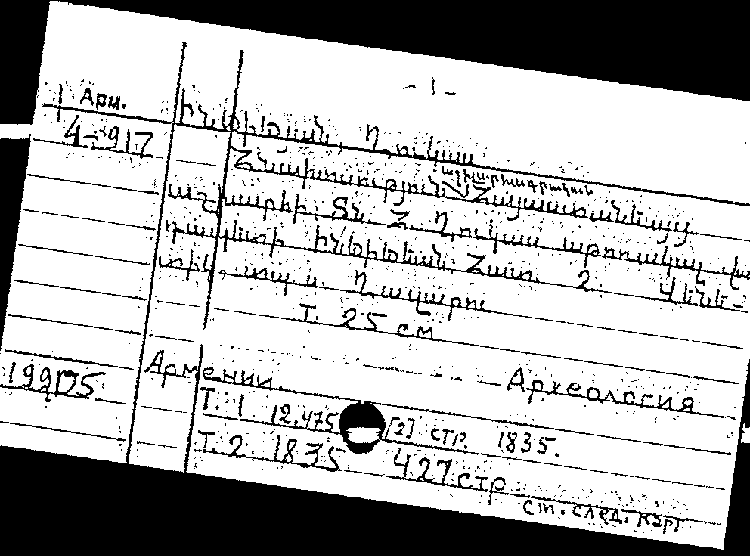 - 1 -
Арм.
4-917
Ինճիճեան, Ղուկաս
Հնախօսութիւն աշխարհագրական Հայաստանեայց
աշխարհի. Տն. Հ. Ղուկաս աթոռակալ վ
Ինճիճեան. Հատ. 2. Վենե-
տիկ, տպ. Ս. Ղազարու
Т. 25 см
Армении. Археология
Т. 1 12, 475 [2] стр. 1835.
Т. 2 1835 427 стр
см. след. карт